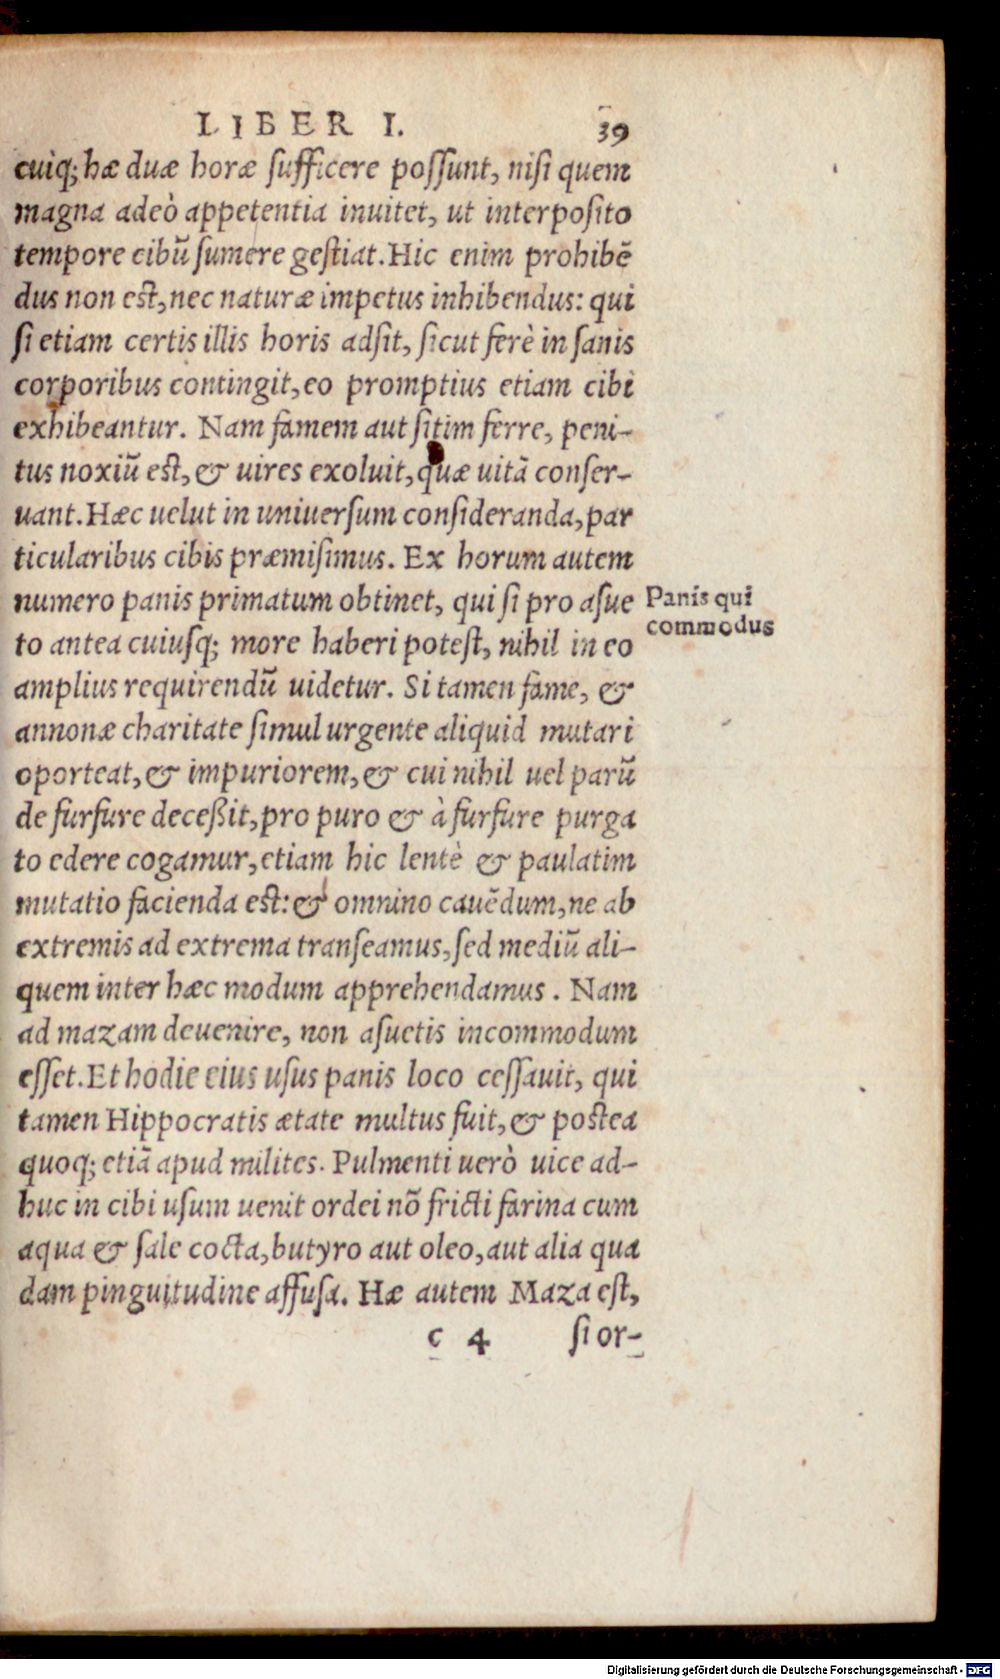 LIBER I. 39
cuiq; hæ duæ horæ ſufficere poſſunt, niſi quem
magna adeò appetentia inuitet, ut interpoſito
tempore cibũ ſumere geſtiat. Hic enim prohibẽ
dus non eſt, nec naturæ impetus inhibendus: qui
ſi etiam certis illis horis adſit, ſicut ferè in ſanis
corporibus contingit, eo promptius etiam cibi
exhibeantur. Nam famem aut ſitim ferre, peni-
tus noxiũ eſt, & uires exoluit, quæ uitã conſer-
uant. Hæc uelut in uniuerſum conſideranda, par
ticularibus cibis præmiſimus. Ex horum autem
numero panis primatum obtinet, qui ſi pro aſue
Panis qui
commodus
to antea cuiuſq; more haberi poteſt, nihil in eo
amplius requirendũ uidetur. Si tamen fame, &
annonæ charitate ſimul urgente aliquid mutari
oporteat, & impuriorem, & cui nihil uel parũ
de furfure deceßit, pro puro & à furfure purga
to edere cogamur, etiam hic lentè & paulatim
mutatio facienda eſt: & omnino cauẽdum, ne ab
extremis ad extrema tranſeamus, ſed mediũ ali-
quem inter hæc modum apprehendamus. Nam
ad mazam deuenire, non aſuetis incommodum
eſſet. Et hodie eius uſus panis loco ceſſauit, qui
tamen Hippocratis ætate multus fuit, & poſtea
quoq; etiã apud milites. Pulmenti uerò uice ad-
huc in cibi uſum uenit ordei nõ fricti farina cum
aqua & ſale cocta, butyro aut oleo, aut alia qua
dam pinguitudine affuſa. Hæ autem Maza eſt,
c 4 ſi or-
Digitalisierung gefördert durch die Deutsche Forschungsgemeinschaft - DFG